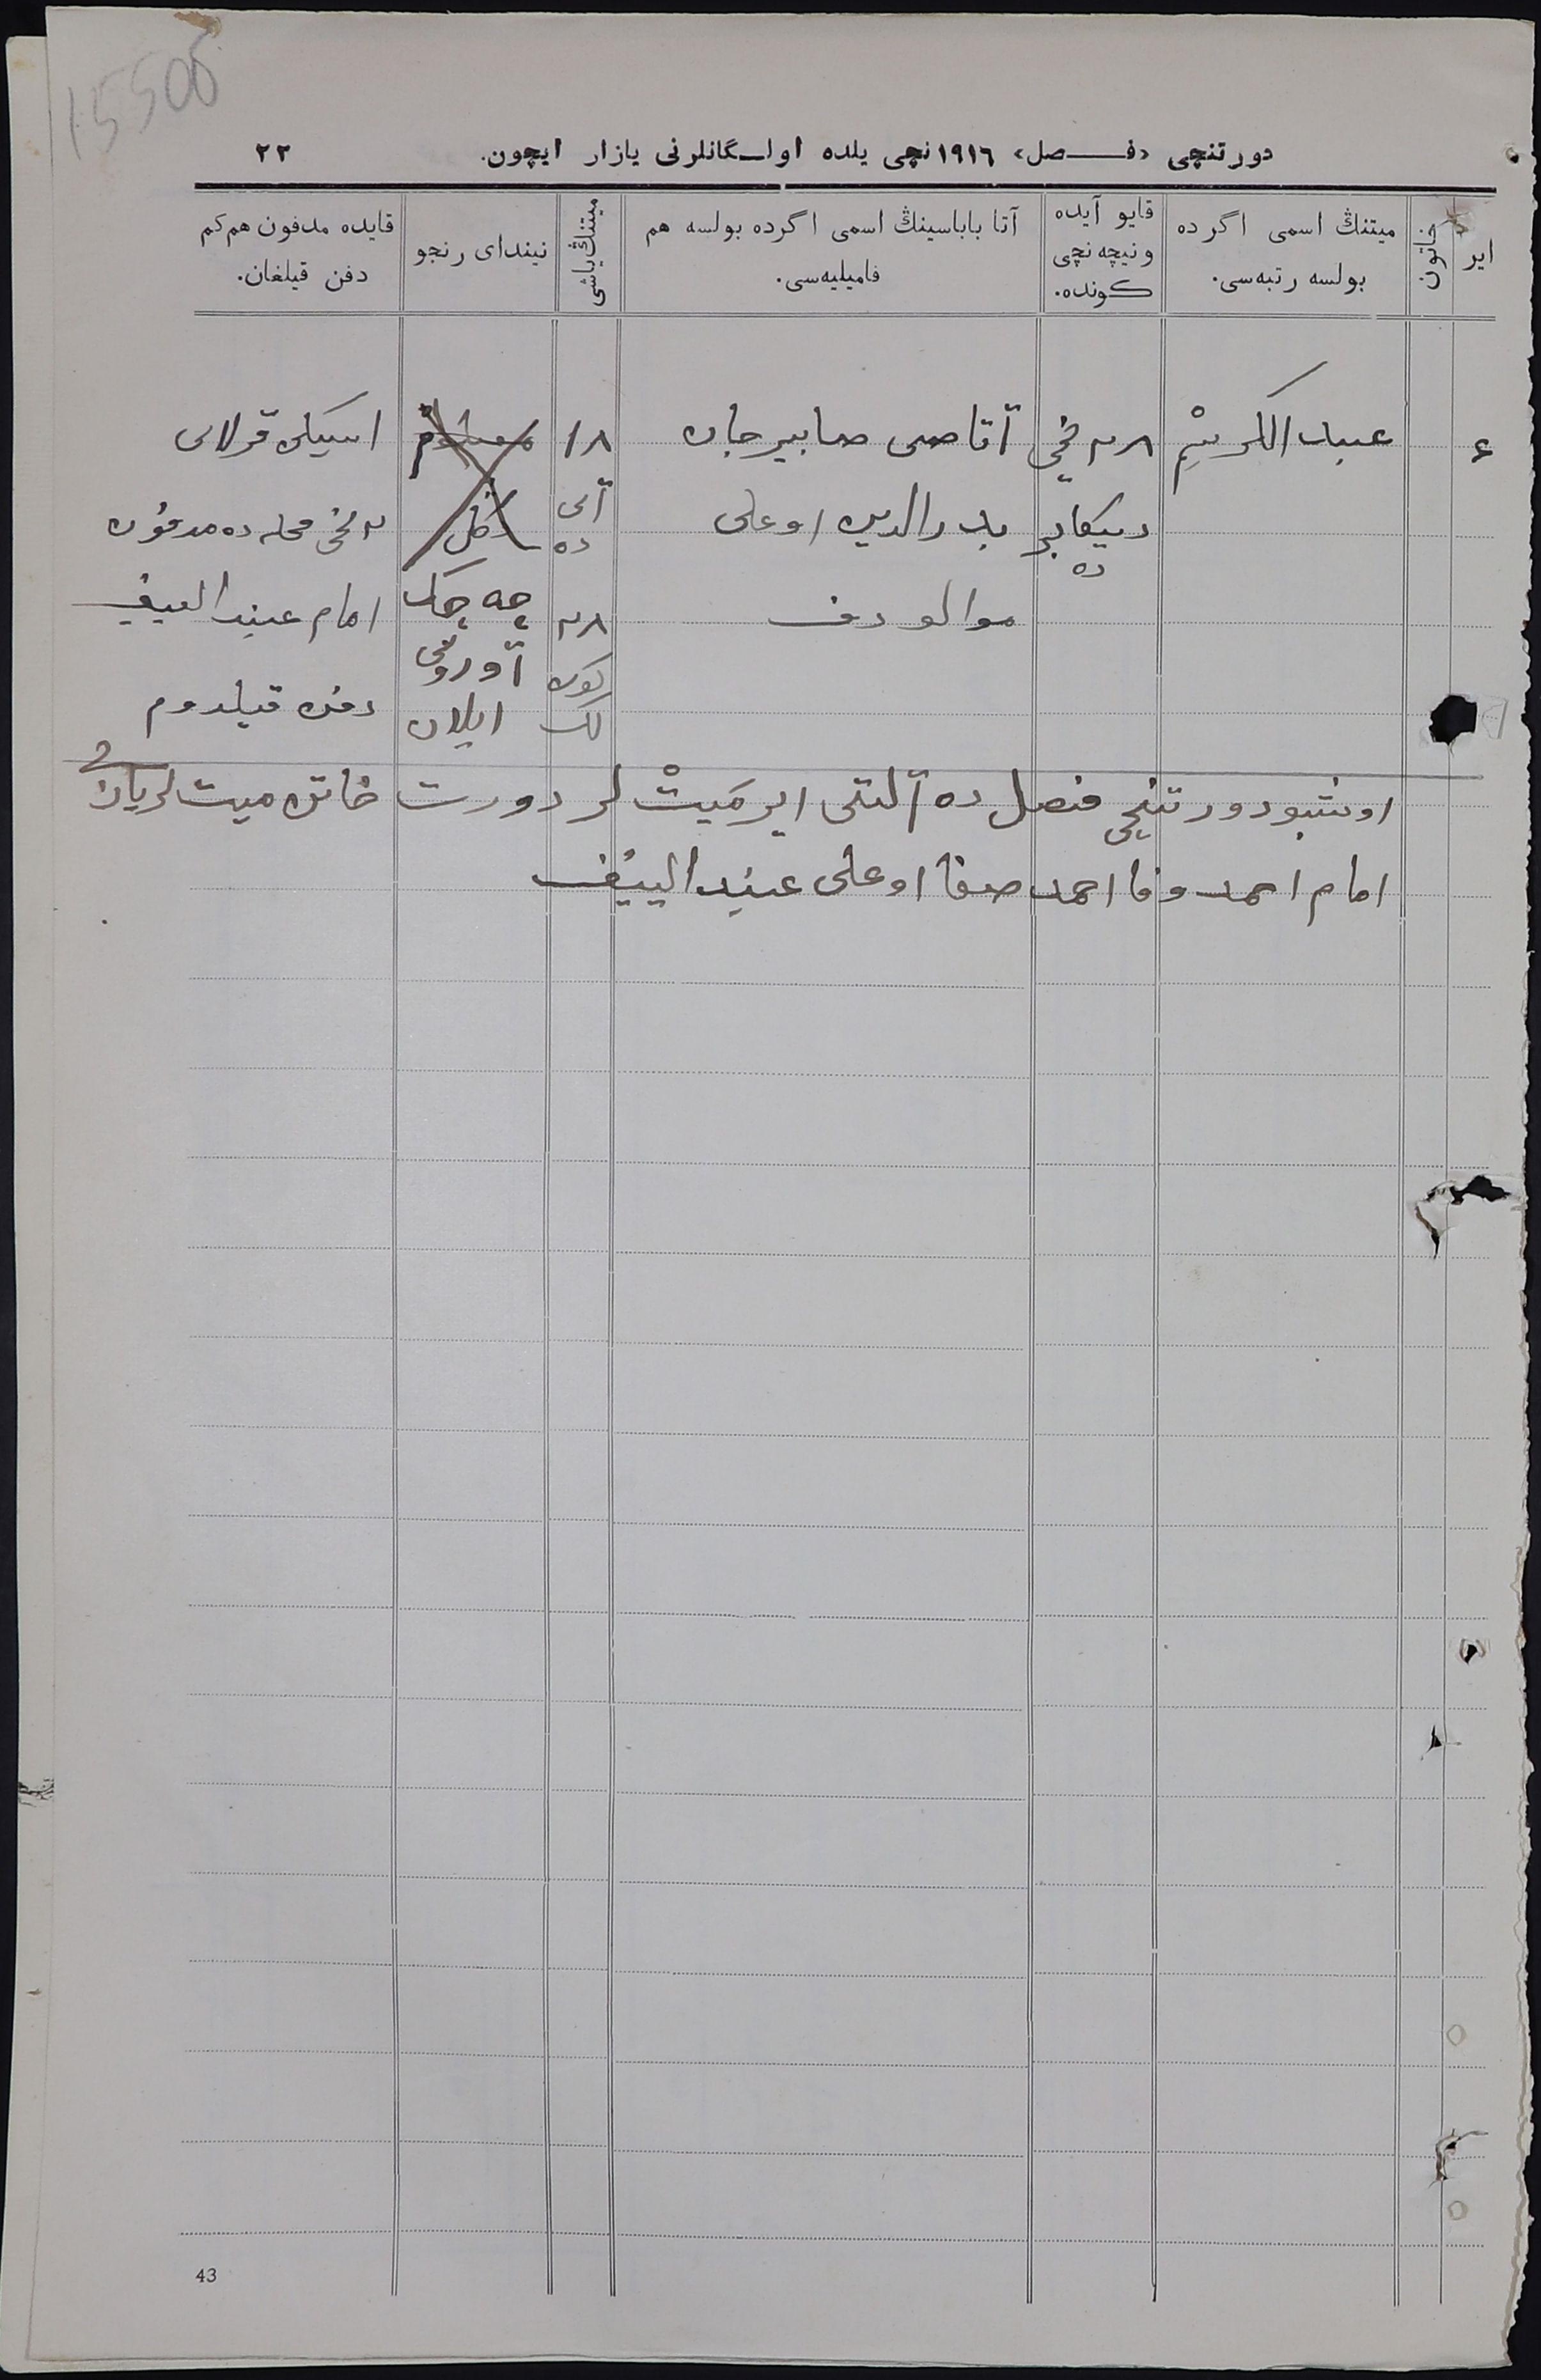 15508
دورتنچی «فصل» ١٩١٦ نچی یلده اولـگانلرنی یازار ایچون. ٢٢
ایر
خاتون
میتننڭ اسمی اگرده
بولسه رتبه‌سی.
قایو آیده
ونیچه نچی
کونده.
آتا باباسیننڭ اسمی اگرده بولسه هم
فامیلیه‌سی.
میتننڭ یاشی
نیندای رنجو
قایده مدفون هم کم
دفن قیلغان.
عبد الکریم
٢٨ نچی
دیکابر
ده
آتاصی صابیرجان
بدرالدین اوغلی
موالودف
١٨
آی
ده
٢٨
کون
لک
معلوم
دکل
چه چک
آوروی
ایلان
ایسکی قرلای
٢ نچی محله ده مدفون
امام عبید اللیف
دفن قیلدوم
اوشبو دورتنچی فصل ده آلتی ایر میت لر دورت خاتن میت لر یازدم
امام احمد وفا احمد صفا اوغلی عبید اللیف
43